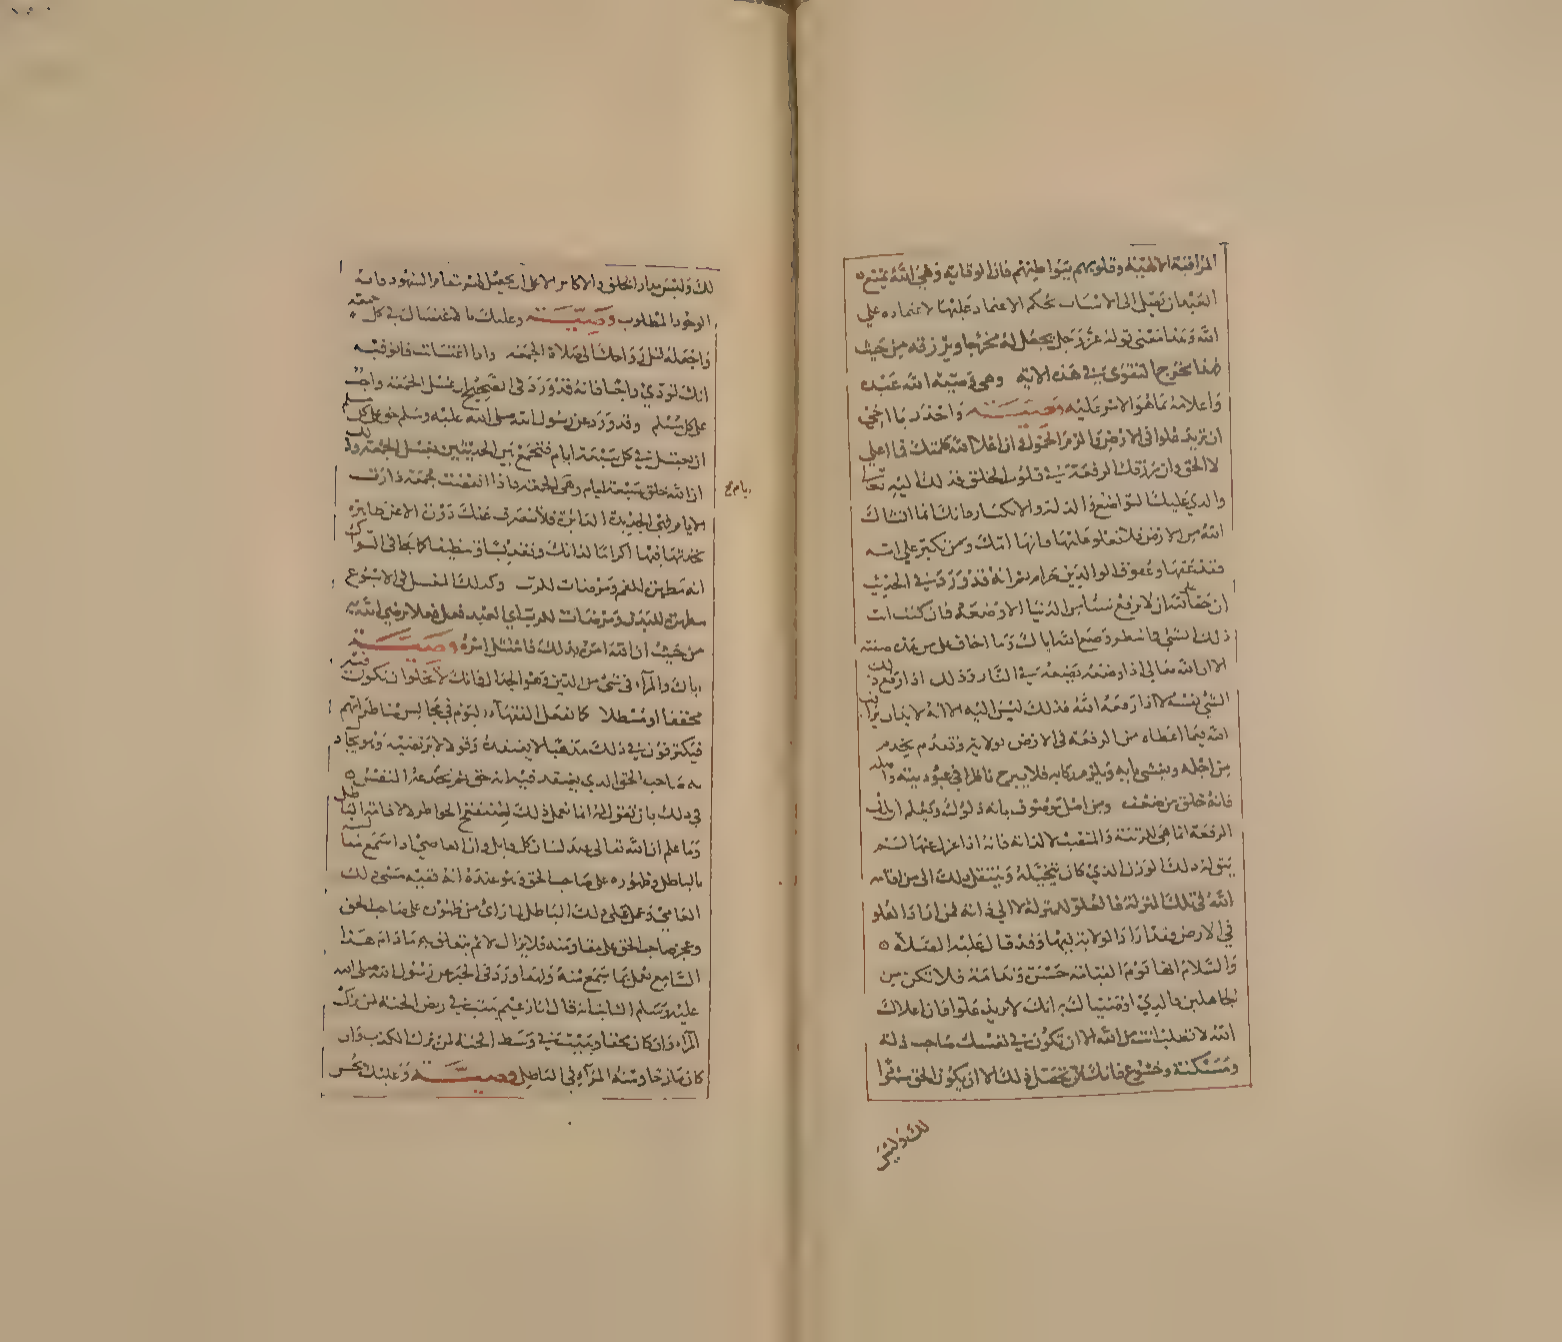 المراقبة الالهية وقلوبهم ببواطنهم فان الوقاية وهي الله تمنع
العبد ان يصل الى الاسباب بحكم الاعتماد عليها لاعتماده على
الله وهذا معنى قوله عز وجل يجعل له مخرجا ويرزقه من حيث
هذا مخرج التقوى في هذه الاية وهي وصية الله عبده
واعلامه بما هو الامر عليه وصيـــة واحذر يا اخي
ان تريد علوا في الارض والزم الخمول وان اعلا الله كلمتك فما اعلى
الا الحق وان رزقك الرفعة في قلوب الخلق فذلك اليه تعا
والذي عليك التواضع والذلة والانكسار فانك انما انشاك
الله من الارض فلا تعلو عليها فانها امك ومن تكبر على امه
فقد عقها وعقوق الوالدين حرام ثم انه قد ورد في الحديث
ان حقا على الله ان لا يرفع شيئا من الدنيا الا وضعه فان كنت انت
ذلك الشي فانتظر وضع الله اياك وما اخاف على من هذه صفته
الا ان الله تعالى اذا وضعه يضعه في النار وذلك اذا رفع ذلك
الشي نفسه لا اذا رفعه الله فذلك ليس اليه الا انه لا بد ان يراقب
الله فيما اعطاه من الرفعة في الارض بولاية وتقدم يخدم
من اجله ويغشى بابه ويلزم ركابه فلا يبرح ناظرا في عبوديته واصله
فانه خلق من ضعف ومن اصل موصوف بانه ذلول ويعلم ان تلك
الرفعة انما هي للرتبة والمنصب لا لذاته فانه اذا عزل عنها لم
يبق له ذلك الوزن الذي كان يتخيله وينتقل ذلك الى من اقامه
الله في تلك المنزلة فالعلو للمنزلة لا الى ذاته فمن اراد العلو
في الارض فقد اراد الولاية فيها وقد قال عليه الصلاة
والسلام انها يوم القيامة حسرة وندامة فلا تكن من
الجاهلين فالذي اوصيتك به انك لا تريد علوا فان اعلاك
الله لا تطلب انت من الله الا ان تكون في نفسك صاحب ذلة
ومسكنة وخشوع فانك لن تحصل ذلك الا ان يكون الحق مشهودا
لك وليس
لك وليس مدار الخلق والاكابر الا على ان يحصل لهم مقام الشهود فانه
الوجود المطلوب وصيـــة وعليك بالاغتسال في كل جمعة
واجعله قبل رواحك الى صلاة الجمعة واذا اغتسلت فانو فيه
انك تودي واجبا فانه قد ورد في الصحيح ان غسل الجمعة واجب
على كل مسلم وقد ورد عن رسول الله صلى الله عليه وسلم حق على كل مسلم
ان يغتسل في كل سبعة ايام فتجمع بين الحديثين بغسل الجمعة وذلك
ان الله خلق سبعة ايام وهي الجمعة فاذا انقضت جمعة دارت
الايام فهي الجديدة الدائرة فلا تنصرف عنك دورة الا عن طهارة
تحدثها فيها اكراما لذاتك وتقديسا وتنظيفا كما جا في السواك
انه مطهرة للفم ومرضات للرب وكذلك الغسل في الاسبوع
مطهرة للبدن ومرضات للرب اي العبد فعل فعلا يرضي الله به
من حيث ان الله امره بذلك فامتثل امره وصيـــة
اياك والمرآء في شي من الدين فهو الجدال فانك لا تخلوا ان تكون فيه
محقفا او مبطلا كما يفعل الفقهاء اليوم في مجالس مناظراتهم
فيلتزمون في ذلك مذهبا لا يعتقده وقولا لا يرتضيه وهو يجادل
به صاحب الحق الذي يعتقد فيه انه حق ثم تخدعه النفس
في ذلك بان تقول له انما نعمل ذلك لتنقيح الخواطر لا لاقامة الباطل
وما علم ان الله تعالى عند لسان كل قايل وان العامي اذا سمع مقالته
بالباطل وظهوره على صاحب الحق وهو عنده انه فقيه مشى ذلك
العامي وعمل على ذلك الباطل لما راى من ظهوره على صاحب الحق
وعجز صاحب الحق عن مقاومته فلا يزال الاثم يتعلق به ما دام هذا
السامع يعمل بما سمع منه ولهذا ورد في الخبر عن رسول الله صلى الله
عليه وسلم الثابت انه قال انا زعيم ببيت في ربض الجنة لمن ترك
المرآء وان كان محقا وببيت في وسط الجنة لمن ترك الكذب وان
كان مازحا ومنه المرآء في الباطل وصيـــة وعليك بحسن